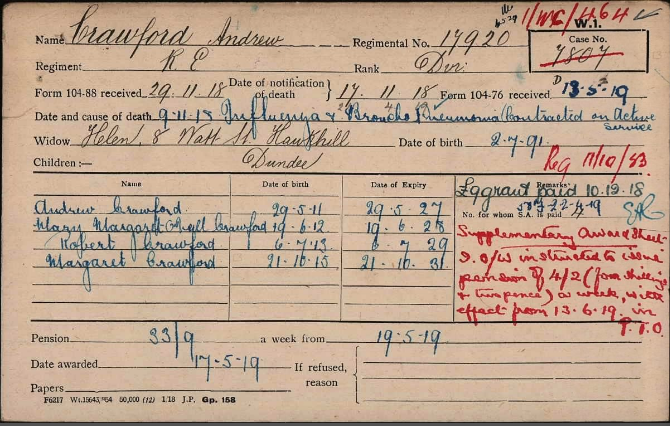 11/WC/464 W.1.
Name Crawford Andrew Regimental No. 17920 Case No. 7807
Regiment R E Rank Dvr.
Form 104-88 received 29.11.18 Date of notification of death } 17.11.18 Form 104-76 received 13-5-19
Date and cause of death 9-11-18 Influenza & Broncho Pneumonia (Contracted on Active Service
Widow Helen, 8 Watt St. Hawkhill Date of birth 2-7-91.
Children:— Dundee Reg 11/10/83
Name Date of birth Date of Expiry Remarks
£9 grant paid 10.12.18
No. for whom S.A. is paid 4
Andrew Crawford. 29-5-11 29.5.27
Mary Margaret Crawford 19-6-12 19.6-28
Robert Crawford 6-7-13 6.7 29
Margaret Crawford 21-10-15 21-10.31
Supplementary Award Sheet
I.O/W instructed to issue
pension of 4/2 (four shillings
+ twopence) a week, with
effect from 13.6.19. in
P.T.O.
Pension 33/9 a week from 19-5-19
Date awarded 17-5-19 If refused, reason
Papers
F6217 Wt.15643/864 50,000 (12) 1/18 J.P. Gp. 158